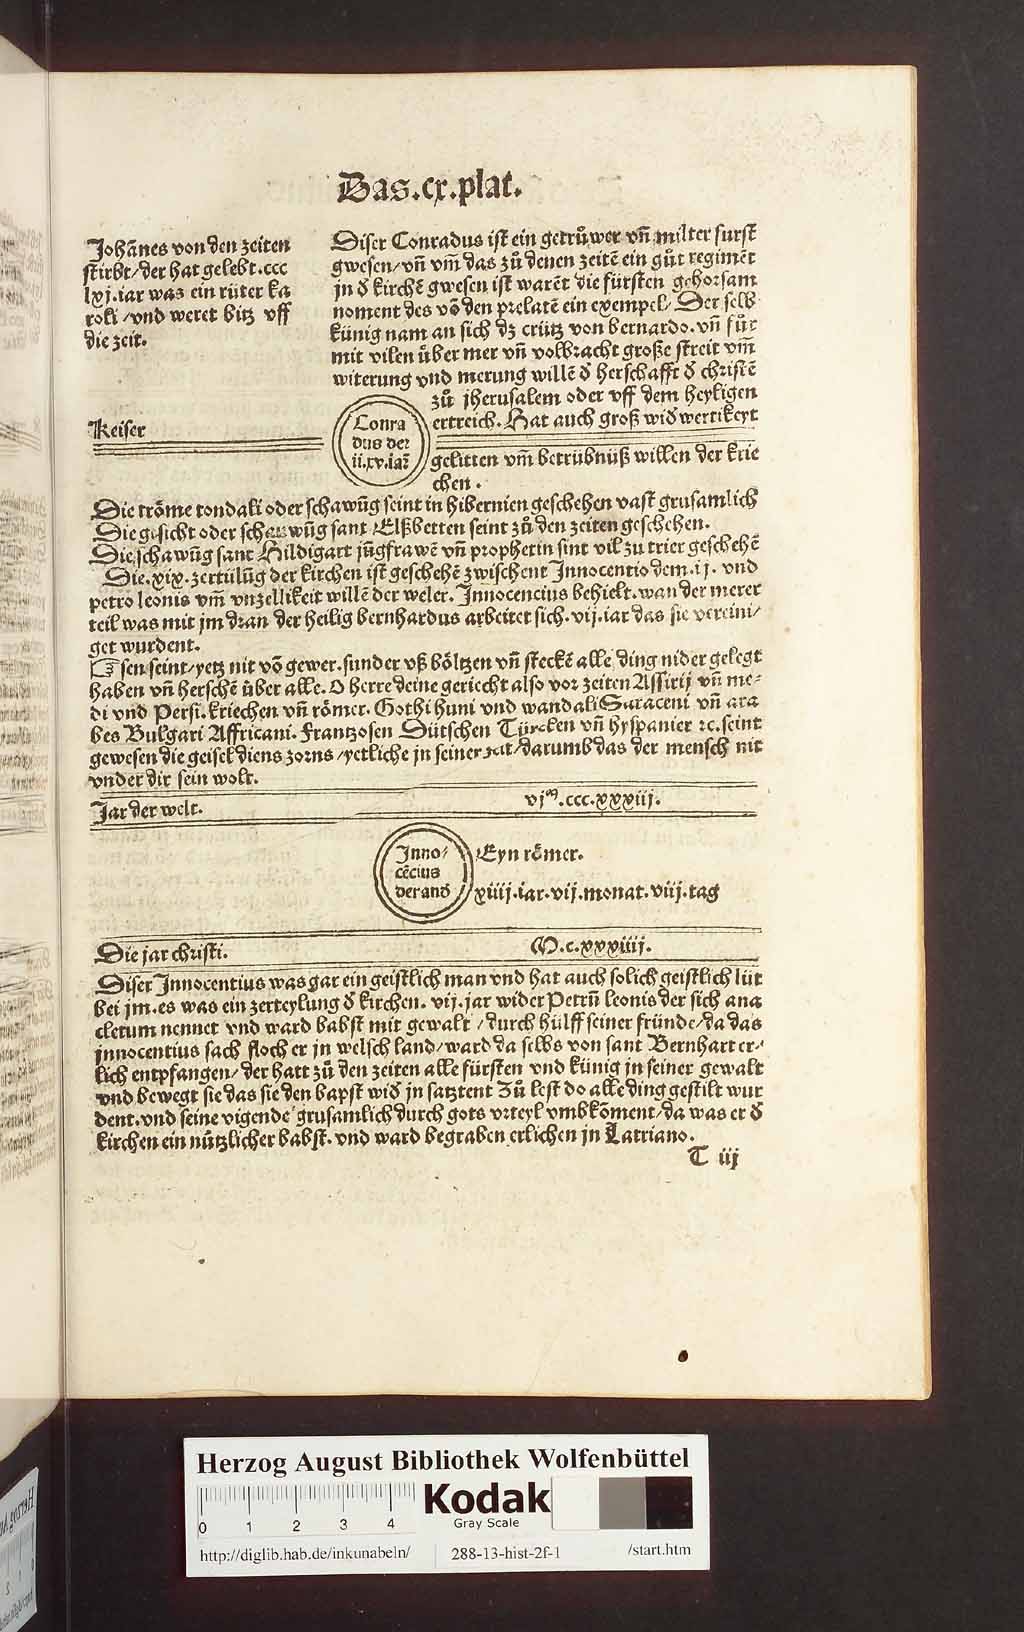 Das.cx.plat.
Johānes von den zeiten
stirbt/der hat gelebt.ccc
lxj.iar was ein rüter ka
roli/vnd weret bitz vff
die zeit.
Diser Conradus ist ein getrüwer vñ milter furst
gwesen/vñ vm̄ das zů denen zeitē ein gůt regimēt
jn d̄ kirchē gwesen ist warēt die fürsten gehorsam
noment des vō den prelatē ein exempel/Der selb
künig nam an sich dz crütz von bernardo.vñ fůr
mit vilen über mer vñ volbracht große streit vm̄
witerung vnd merung willē d̄ herschafft d̄ christē
zů jherusalem oder vff dem heyligen
ertreich. Hat auch groß wid̄wertikeyt
Keiser
Conra
dus der
ii.xv.iar̄
gelitten vm̄ betrübnüß willen der krie
chen.
Die tröme tondali oder schawūg seint in hibernien geschehen vast grusamlich
Die gesicht oder schawūg sant Elßbetten seint zů den zeiten geschehen.
Die schawūg sant Hildigart jūgfrawē vñ prophetin sint vil zu trier geschehē
Die.xix.zertülūg der kirchen ist geschehē zwischent Innocentio dem.ij.vnd
petro leonis vm̄ vnzellikeit willē der weler. Innocencius behielt.wan der merer
teil was mit jm dran der heilig bernhardus arbeitet sich.vij.iar das sie vereini/
get wurdent.
☞sen seint/yetz nit vō gewer.sunder vß böltzen vñ steckē alle ding nider gelegt
haben vñ herschē über alle. O herre deine geriecht also vor zeiten Assirij vñ me-
di vnd Persi.kriechen vñ römer. Gothi huni vnd wandali Saraceni vñ ara
bes Bulgari Affricani. Frantzosen Dütschen Türcken vñ hyspanier ꝛc.seint
gewesen die geisel diens zorns/yetliche jn seiner zit/darumb das der mensch nit
vnder dir sein wolt.
Jar der welt. vjᵐ.ccc.xxxiij.
Inno/
cēcius
der and
Eyn römer.
xiiij.iar.vij.monat.viij.tag
Die jar christi. M.c.xxxiiij.
Diser Innocentius was gar ein geistlich man vnd hat auch solich geistlich lüt
bei jm.es was ein zerteylung d̄ kirchen.vij.jar wider Petrū leonis der sich ana
cletum nennet vnd ward babst mit gewalt/durch hülff seiner fründe/da das
innocentius sach floch er jn welsch land/ward da selbs von sant Bernhart er-
lich entpfangen/der hatt zů den zeiten alle fürsten vnd künig jn seiner gewalt
vnd bewegt sie das sie den bapst wid̄ jn satztent Zů lest do alle ding gestilt wur
dent.vnd seine vigende grusamlich durch gots vrteyl vmbkōment/da was er d̄
kirchen ein nützlicher babst.vnd ward begraben erlichen jn Latriano.
T iij
Herzog August Bibliothek Wolfenbüttel
0 1 2 3 4
Kodak
Gray Scale
http://diglib.hab.de/inkunabeln/ 288-13-hist-2f-1 /start.htm